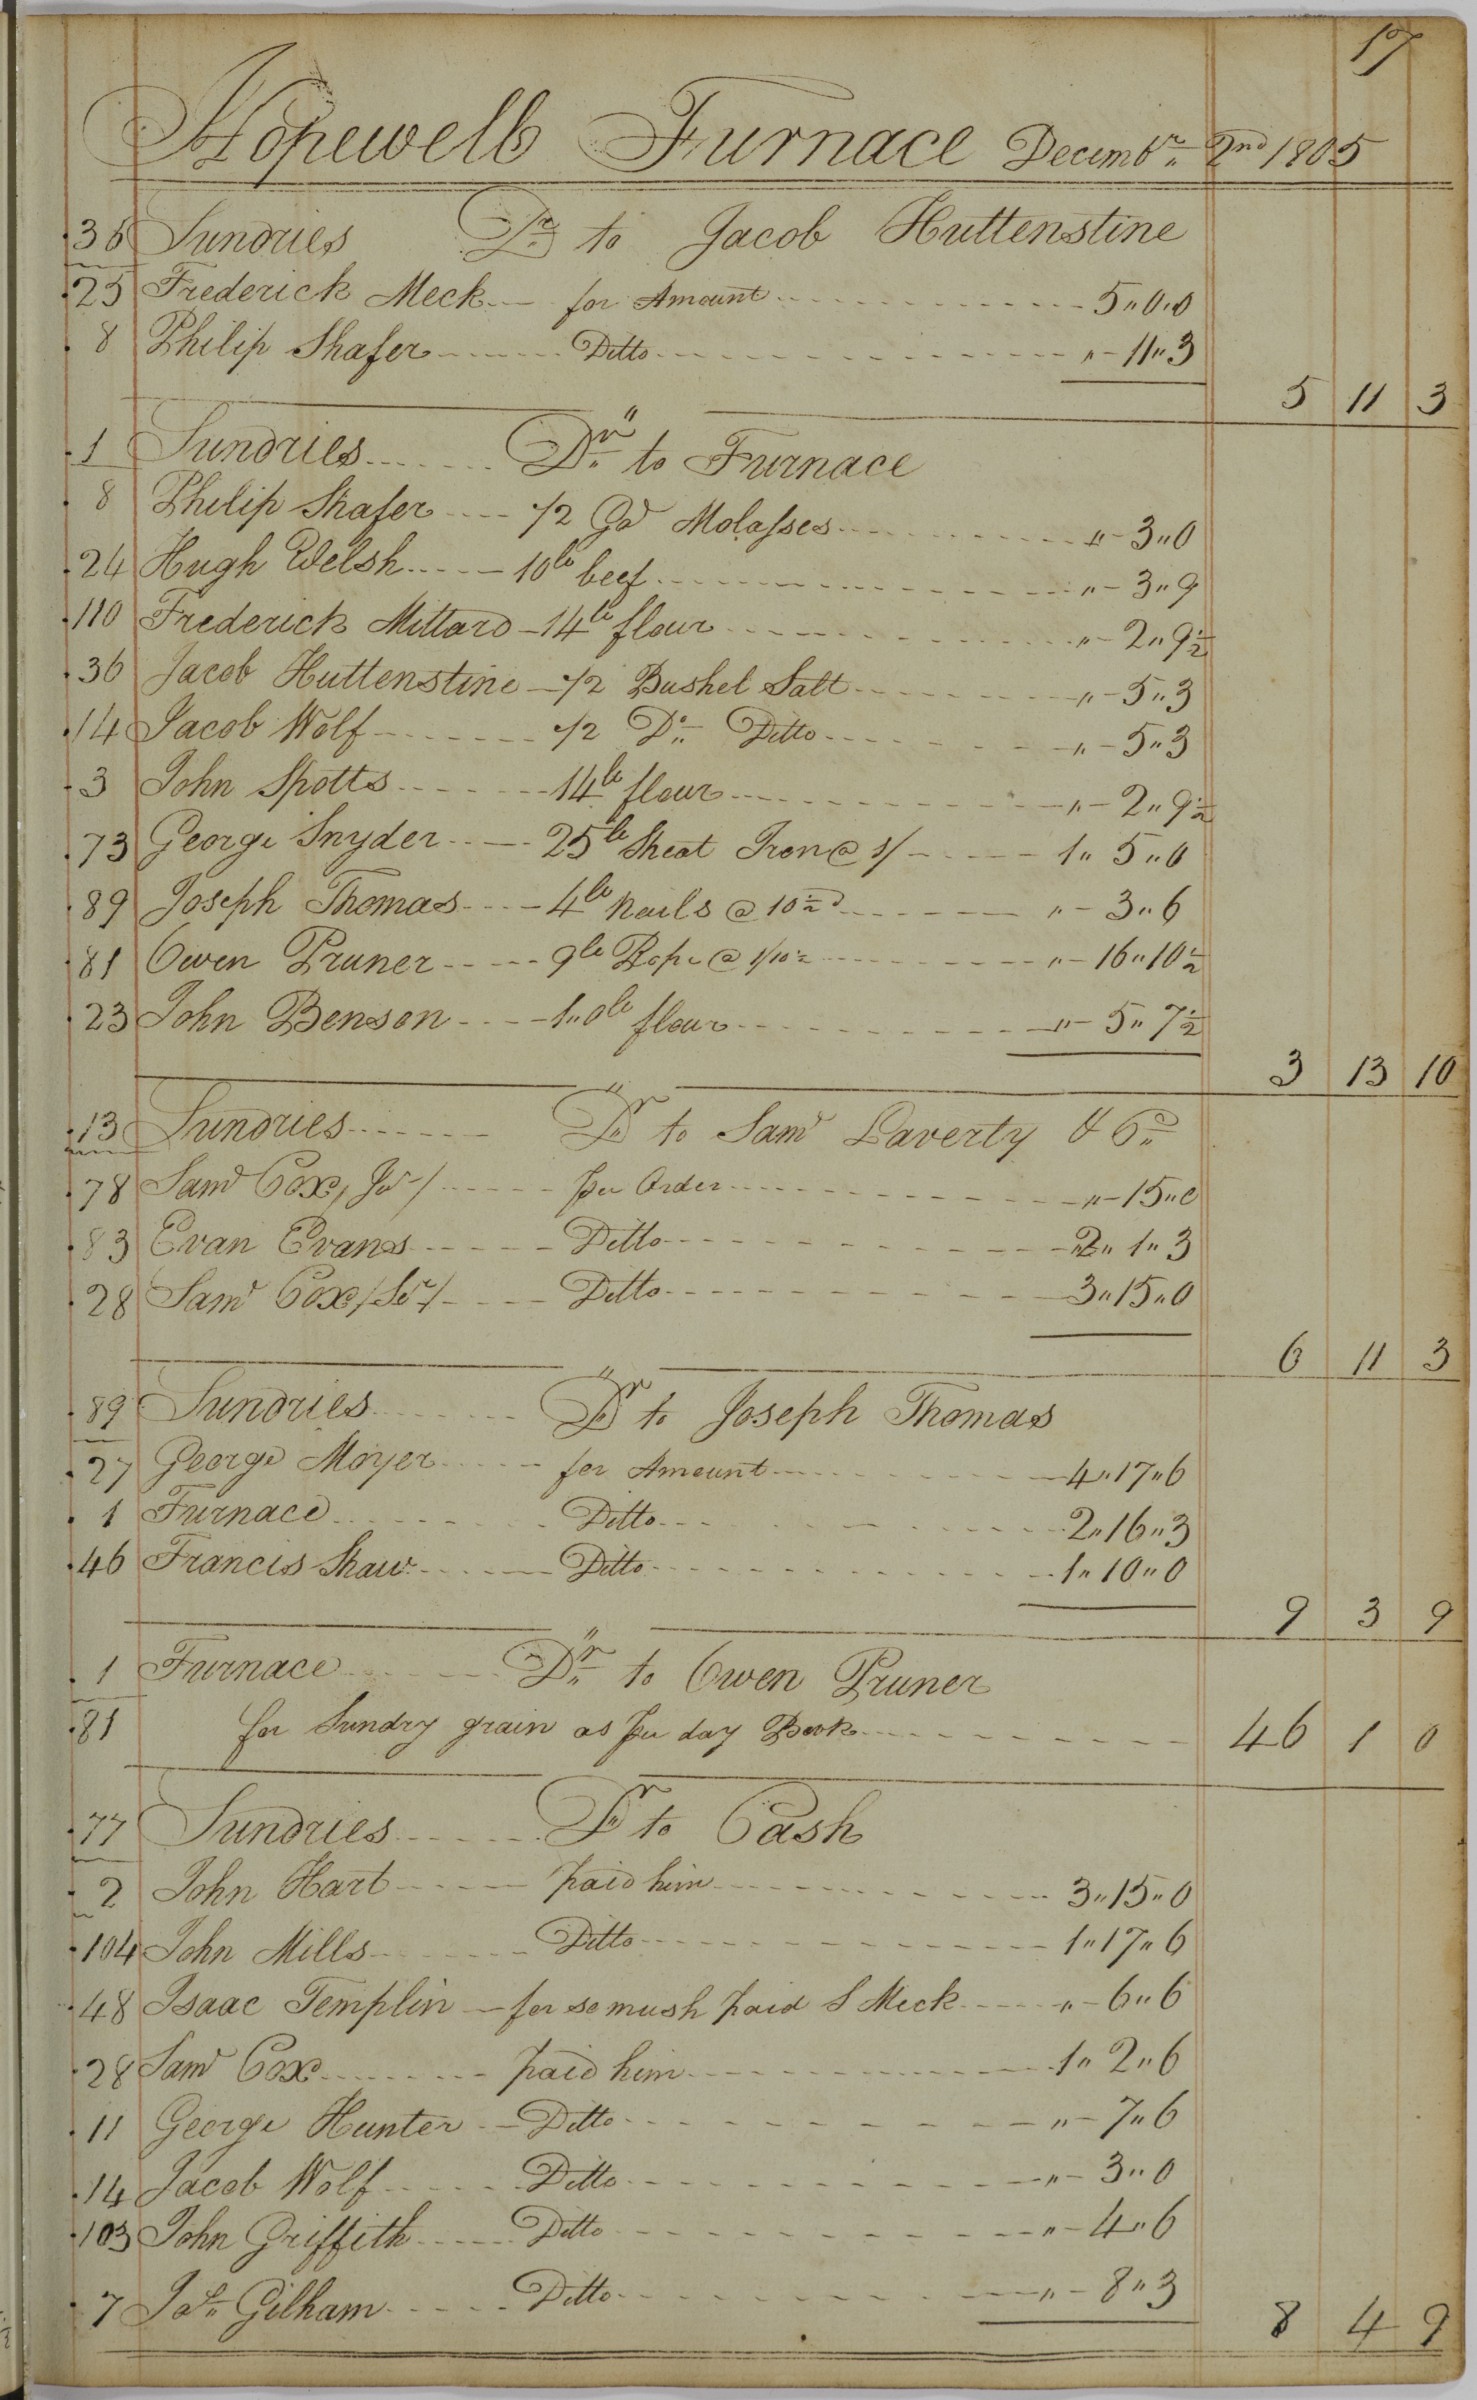 17
Hopewell Furnace Decemb.r 2nd 1805
36 Sundries Dr to Jacob Huttenstine
25 Frederick Meck for Amount 5 " 0 " 0
8 Philip Shafer Ditto " - 11 " 3
5 11 3
1 Sundries Dr to Furnace
8 Philip Shafer 1/2 Gal Molasses " - 3 " 0
24 Hugh Welsh 10 lb beef " - 3 " 9
110 Frederick Millard 14 lb flour " - 2 " 9 1/2
36 Jacob Huttenstine 1/2 Bushel Salt " - 5 " 3
14 Jacob Wolf 1/2 Do Ditto " - 5 " 3
3 John Spotts 14 lb flour " - 2 " 9 1/2
73 George Snyder 25 lb Sheat Iron @ 1/ 1 " 5 " 0
89 Joseph Thomas 4 lb Nails @ 10 1/2 d " - 3 " 6
81 Owen Pruner 9 lb Rope @ 1/10 1/2 " - 16 " 10 1/2
23 John Benson 1 " 0 lb flour " - 5 " 7 1/2
3 13 10
13 Sundries Dr to Saml Laverty & Co
78 Saml Cox, Jr/ per Order " - 15 " 0
83 Evan Evans Ditto 2 " 1 " 3
28 Saml Cox /Sr/ Ditto 3 " 15 " 0
6 11 3
89 Sundries Dr to Joseph Thomas
27 George Moyer for Amount 4 " 17 " 6
1 Furnace Ditto 2 " 16 " 3
46 Francis Shaw Ditto 1 " 10 " 0
9 3 9
1 Furnace Dr to Owen Pruner
81 for Sundry grain as per day Book 46 1 0
77 Sundries Dr to Cash
2 John Hart paid him 3 " 15 " 0
104 John Mills Ditto 1 " 17 " 6
48 Isaac Templin for so mush paid S Meck " - 6 " 6
28 Saml Cox paid him 1 " 2 " 6
11 George Hunter Ditto " - 7 " 6
14 Jacob Wolf Ditto " - 3 " 0
103 John Griffith Ditto " - 4 " 6
7 Jos Gilham Ditto " - 8 " 3
8 4 9